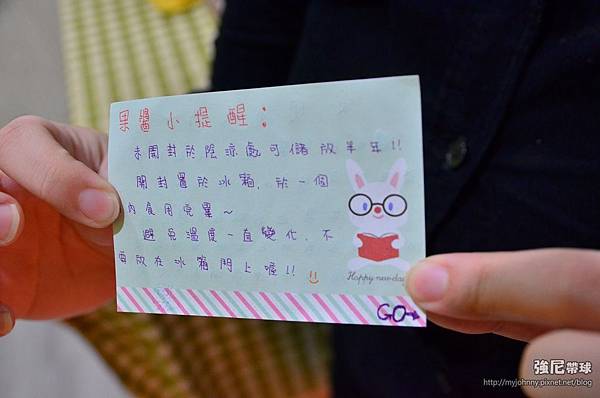 果醬小提醒：
未開封於陰涼處可儲放半年!!
開封置於冰箱，於一個
內食用完畢～
避免溫度一直變化，不
要放在冰箱門上喔!!
Happy new day
GO
強尼帶球
http://myjohnny.pixnet.net/blog